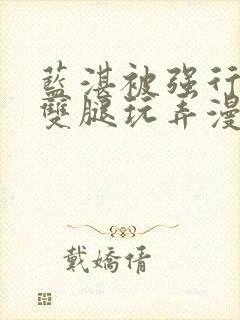 藍湛被强行
雙腿玩弄漫
戴嬌倩